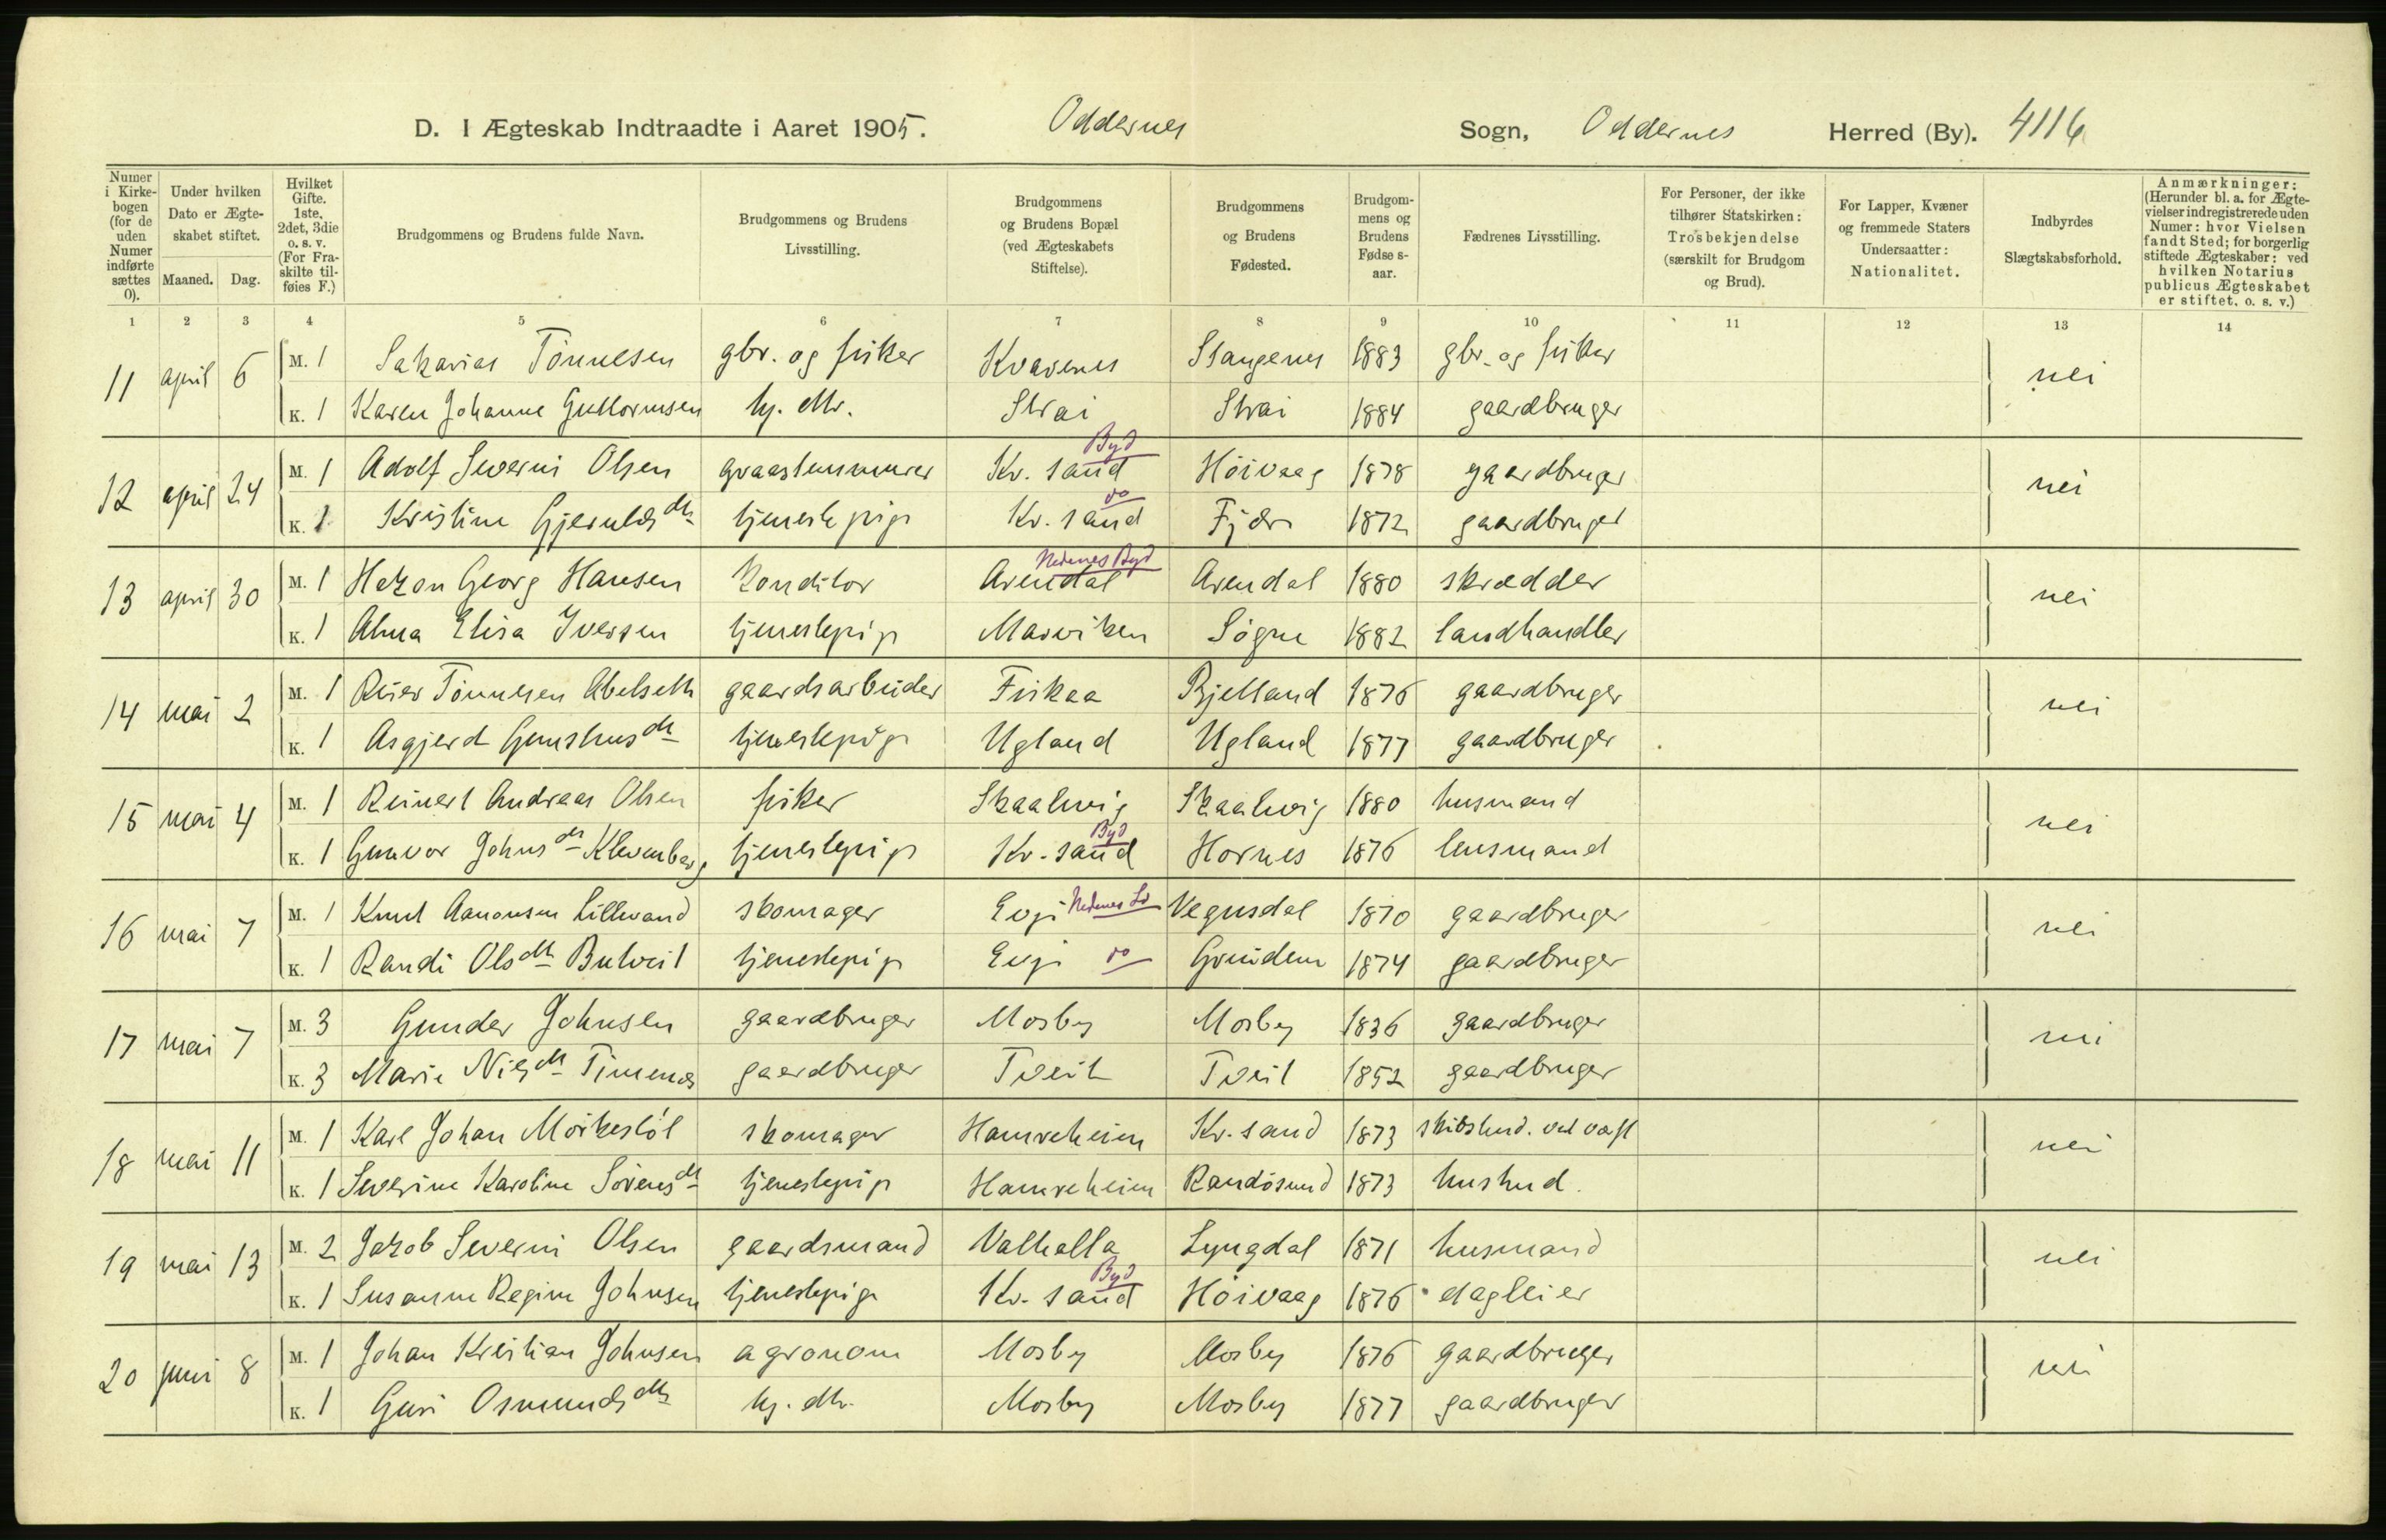 D. I Ægteskab Indtraadte i Aaret 1905. Oddernes Sogn, Oddernes Herred (By). 4116
Numer i Kirkebogen (for de uden Numer indførte sættes 0).
Under hvilken Dato er Ægteskabet stiftet.
Maaned. Dag.
Hvilket Gifte. 1ste, 2det, 3die o. s. v. (For Fraskilte tilføies F.)
Brudgommens og Brudens fulde Navn.
Brudgommens og Brudens Livsstilling.
Brudgommens og Brudens Bopæl (ved Ægteskabets Stiftelse).
Brudgommens og Brudens Fødested.
Brudgommens og Brudens Fødselsaar.
Fædrenes Livsstilling.
For Personer, der ikke tilhører Statskirken: Trosbekjendelse (særskilt for Brudgom og Brud).
For Lapper, Kvæner og fremmede Staters Undersaatter: Nationalitet.
Indbyrdes Slægtskabsforhold.
Anmærkninger: (Herunder bl. a. for Ægtevielser indregistrerede uden Numer: hvor Vielsen fandt Sted; for borgerlig stiftede Ægteskaber: ved hvilken Notarius publicus Ægteskabet er stiftet, o. s. v.)
1 2 3 4 5 6 7 8 9 10 11 12 13 14
11 april 6 M. 1 Sakarias Tönnesen gbr. og fisker Kvavenes Stangenes 1883 gbr. og fisker nei
K. 1 Karen Johanne Guttormsen hj. dtr. Strai Strai 1884 gaardbruger
12 april 24 M. 1 Adolf Severin Olsen graastensmurer Kv. sand Byd Höivaag 1878 gaardbruger nei
K. 1 Kristine Gjerulds dtr tjenestepige Kv. sand do Fjære 1872 gaardbruger
13 april 30 M. 1 Hakon Georg Hansen konditor Arendal Nedenes Byd Arendal 1880 skrædder nei
K. 1 Alma Elisa Iversen tjenestepige Marviken Sögne 1882 landhandler
14 mai 2 M. 1 Reier Tönnesen Abelseth gaardsarbeider Fiskaa Bjelland 1876 gaardbruger nei
K. 1 Asgjerd dtr tjenestepige Ugland Ugland 1877 gaardbruger
15 mai 4 M. 1 Reinert Andreas Olsen fisker Skaalevig Skaalevig 1880 husmand nei
K. 1 Gunvor Johns dtr Klevenberg tjenestepige Kv. sand Byd Hornes 1876 lensmand
16 mai 7 M. 1 Knut Aanonsen Lillevand skomager Evje Nedenes Ld Vegusdal 1870 gaardbruger nei
K. 1 Randi Ols dtr tjenestepige Evje do Greindem 1874 gaardbruger
17 mai 7 M. 3 Gunder Johnsen gaardbruger Mosby Mosby 1836 gaardbruger nei
K. 3 Marie Niels dtr Timenes gaardbruger Tveit Tveit 1852 gaardbruger
18 mai 11 M. 1 Karl Johan Mörkestöl skomager Hamreheien Kv. sand 1873 skibstmd. ved værft nei
K. 1 Severine Karoline Sörens dtr tjenestepige Hamreheien Randösund 1873 hustmd.
19 mai 13 M. 2 Jakob Severin Olsen gaardsmand Valhalla Lyngdal 1871 husmand nei
K. 1 Susanne Regine Johnsen tjenestepige Kv. sand Byd Höivaag 1876 dagleier
20 juni 8 M. 1 Johan Kristian Johnsen agronom Mosby Mosby 1876 gaardbruger nei
K. 1 Guri Osmunds dtr hj. dtr. Mosby Mosby 1877 gaardbruger